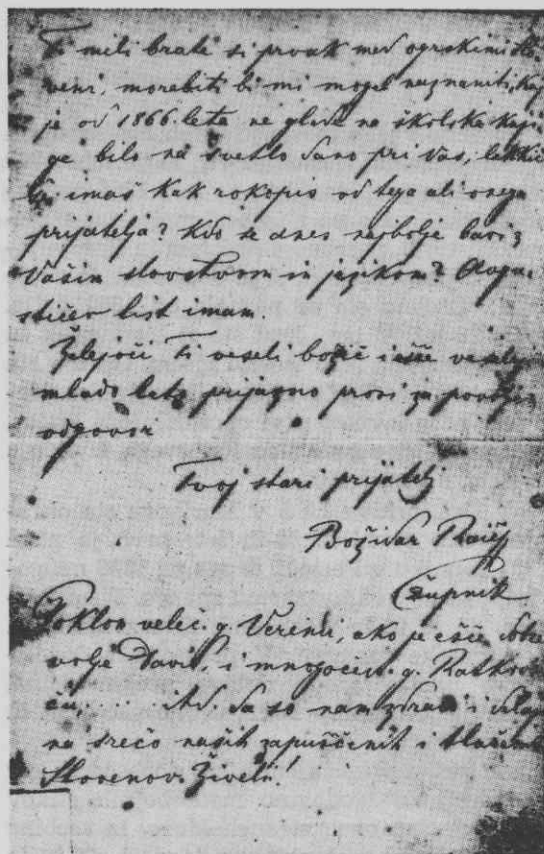 Ti mili brate si prvak med ogrskimi Slo-
veni, morebiti bi mi mogel naznaniti, kaj
je od 1866. leta ne glede na školske knji-
ge bilo na svetlo dano pri Vas, lehko
imaš kak rokopis od tega ali onega
prijatelja? Kdo se dnes najbolje bavi z
Vašim slovstvom in jezikom? Avgu-
stičev list imam.
Želejoči Ti veseli božič i ešče veselejše
mlado leto prijazno prosi za
odgovor
Tvoj stari prijatelj
Božidar Raič
župnik
Poklon veleč. g. Vereni, ako je ešče dobre
volje David, i mnogočis. g.
..... itd. da so nam zdravi i
na srečo naših zapuščenih i tlačenih
Slovenov. Živeli!